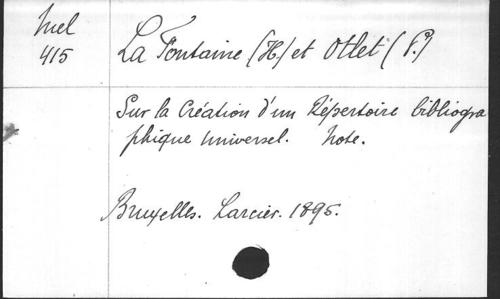 Mel
415
La Fontaine (H.) et Otlet (P.)
Sur la Création d'un Répertoire bibliogra
phique universel. Note.
Bruxelles. Larcier. 1895.